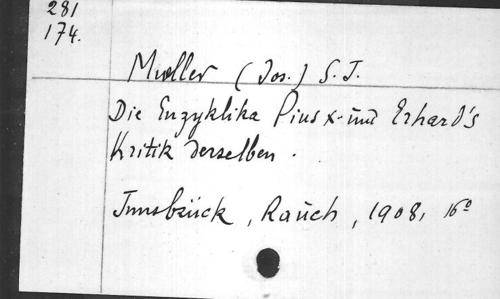 281
174.
Mueller (Jos.) S. J.
Die Enzyklika Pius X. und Erhard's
Kritik derselben.
Innsbrück, Rauch, 1908, 16⁰